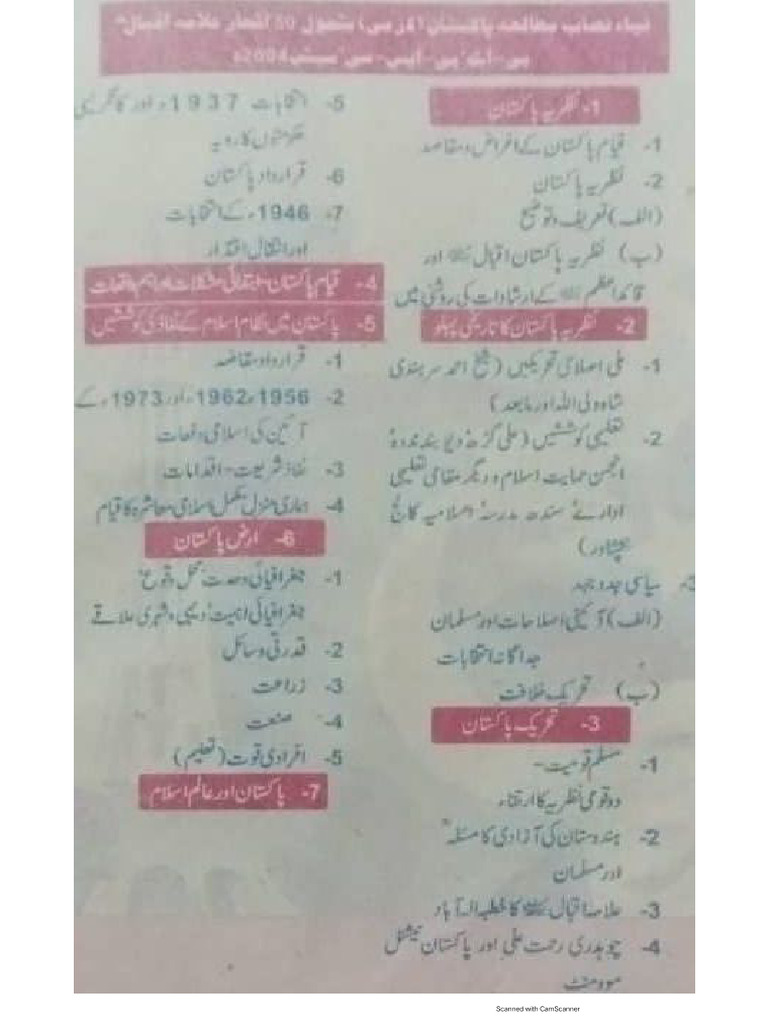 نیاء نصاب مطالعہ پاکستان (لازمی) بشمول 50 اشعار علامہ اقبال
بی-اے، بی-ایس-سی سیشن 2004ء
1- نظریہ پاکستان
1- قیام پاکستان کے اغراض و مقاصد
2- نظریہ پاکستان
(الف) تعریف و توضیح
(ب) نظریہ پاکستان اقبال اور
قائداعظم کے ارشادات کی روشنی میں
2- نظریہ پاکستان کا تاریخی پہلو
1- ملی اصلاحی تحریکیں (شیخ احمد سرہندی
شاہ ولی اللہ اور مابعد)
2- تعلیمی کوششیں (علی گڑھ دیوبند ندوہ
انجمن حمایت اسلام و دیگر مقامی تعلیمی
ادارے سندھ مدرسہ اسلامیہ کالج
پشاور)
3- سیاسی جدوجہد
(الف) آئینی اصلاحات اور مسلمان
جداگانہ انتخابات
(ب) تحریک خلافت
3- تحریک پاکستان
1- مسلم قومیت-
دو قومی نظریہ کا ارتقاء
2- ہندوستان کی آزادی کا مسئلہ
اور مسلمان
3- علامہ اقبال کا خطبہ الہ آباد
4- چوہدری رحمت علی اور پاکستان نیشنل
موومنٹ
5- انتخابات 1937ء اور کانگریسی
حکومتوں کا رویہ
6- قرارداد پاکستان
7- 1946ء کے انتخابات
اور انتقال اقتدار
4- قیام پاکستان-ابتدائی مشکلات اور اہم واقعات
5- پاکستان میں نظام اسلام کے نفاذ کی کوششیں
1- قرارداد مقاصد
2- 1956ء، 1962ء اور 1973ء کے
آئین کی اسلامی دفعات
3- نفاذ شریعت-اقدامات
4- ہماری منزل مکمل اسلامی معاشرہ کا قیام
6- ارض پاکستان
1- جغرافیائی وحدت محل وقوع،
جغرافیائی اہمیت، دیہی و شہری علاقے
2- قدرتی وسائل
3- زراعت
4- صنعت
5- افرادی قوت (تعلیم)
7- پاکستان اور عالم اسلام
Scanned with CamScanner